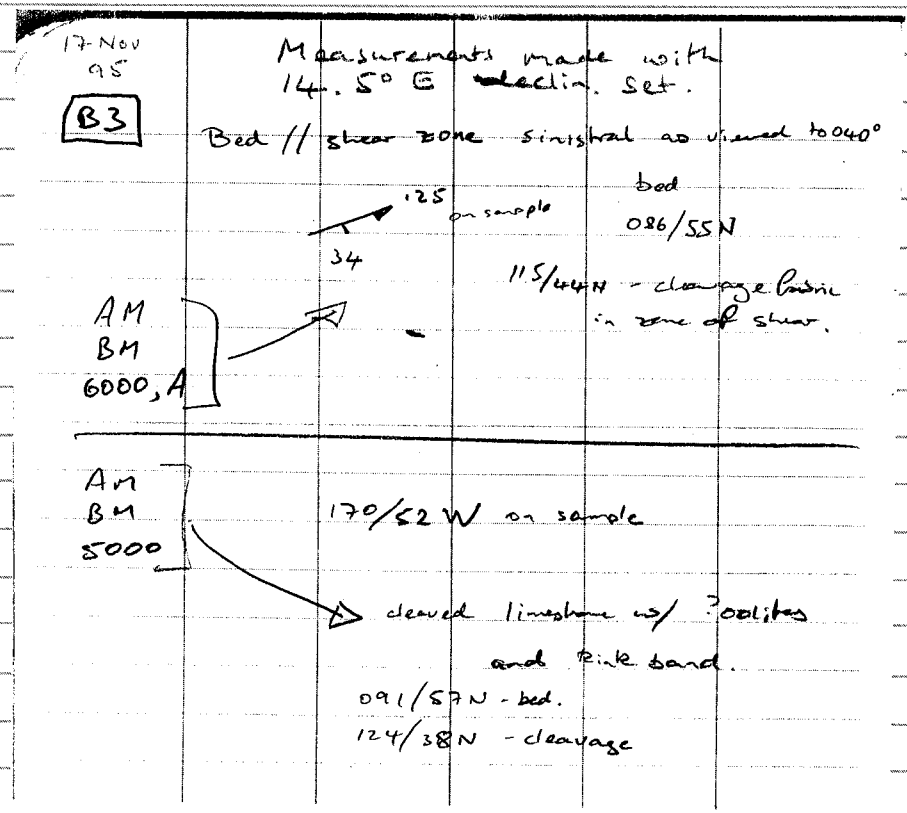 17-Nov
95
Measurements made with
14.5° E declin. set.
B3
Bed // shear zone sinistral as viewed to 040°
125
on sample
34
bed
086/55N
115/44N - cleavage fabric
in zone of shear.
AM
BM
6000, A
AM
BM
5000
170/52 W on sample
cleaved limestone w/ ?oolites
and kink band.
091/57N - bed.
124/38N - cleavage